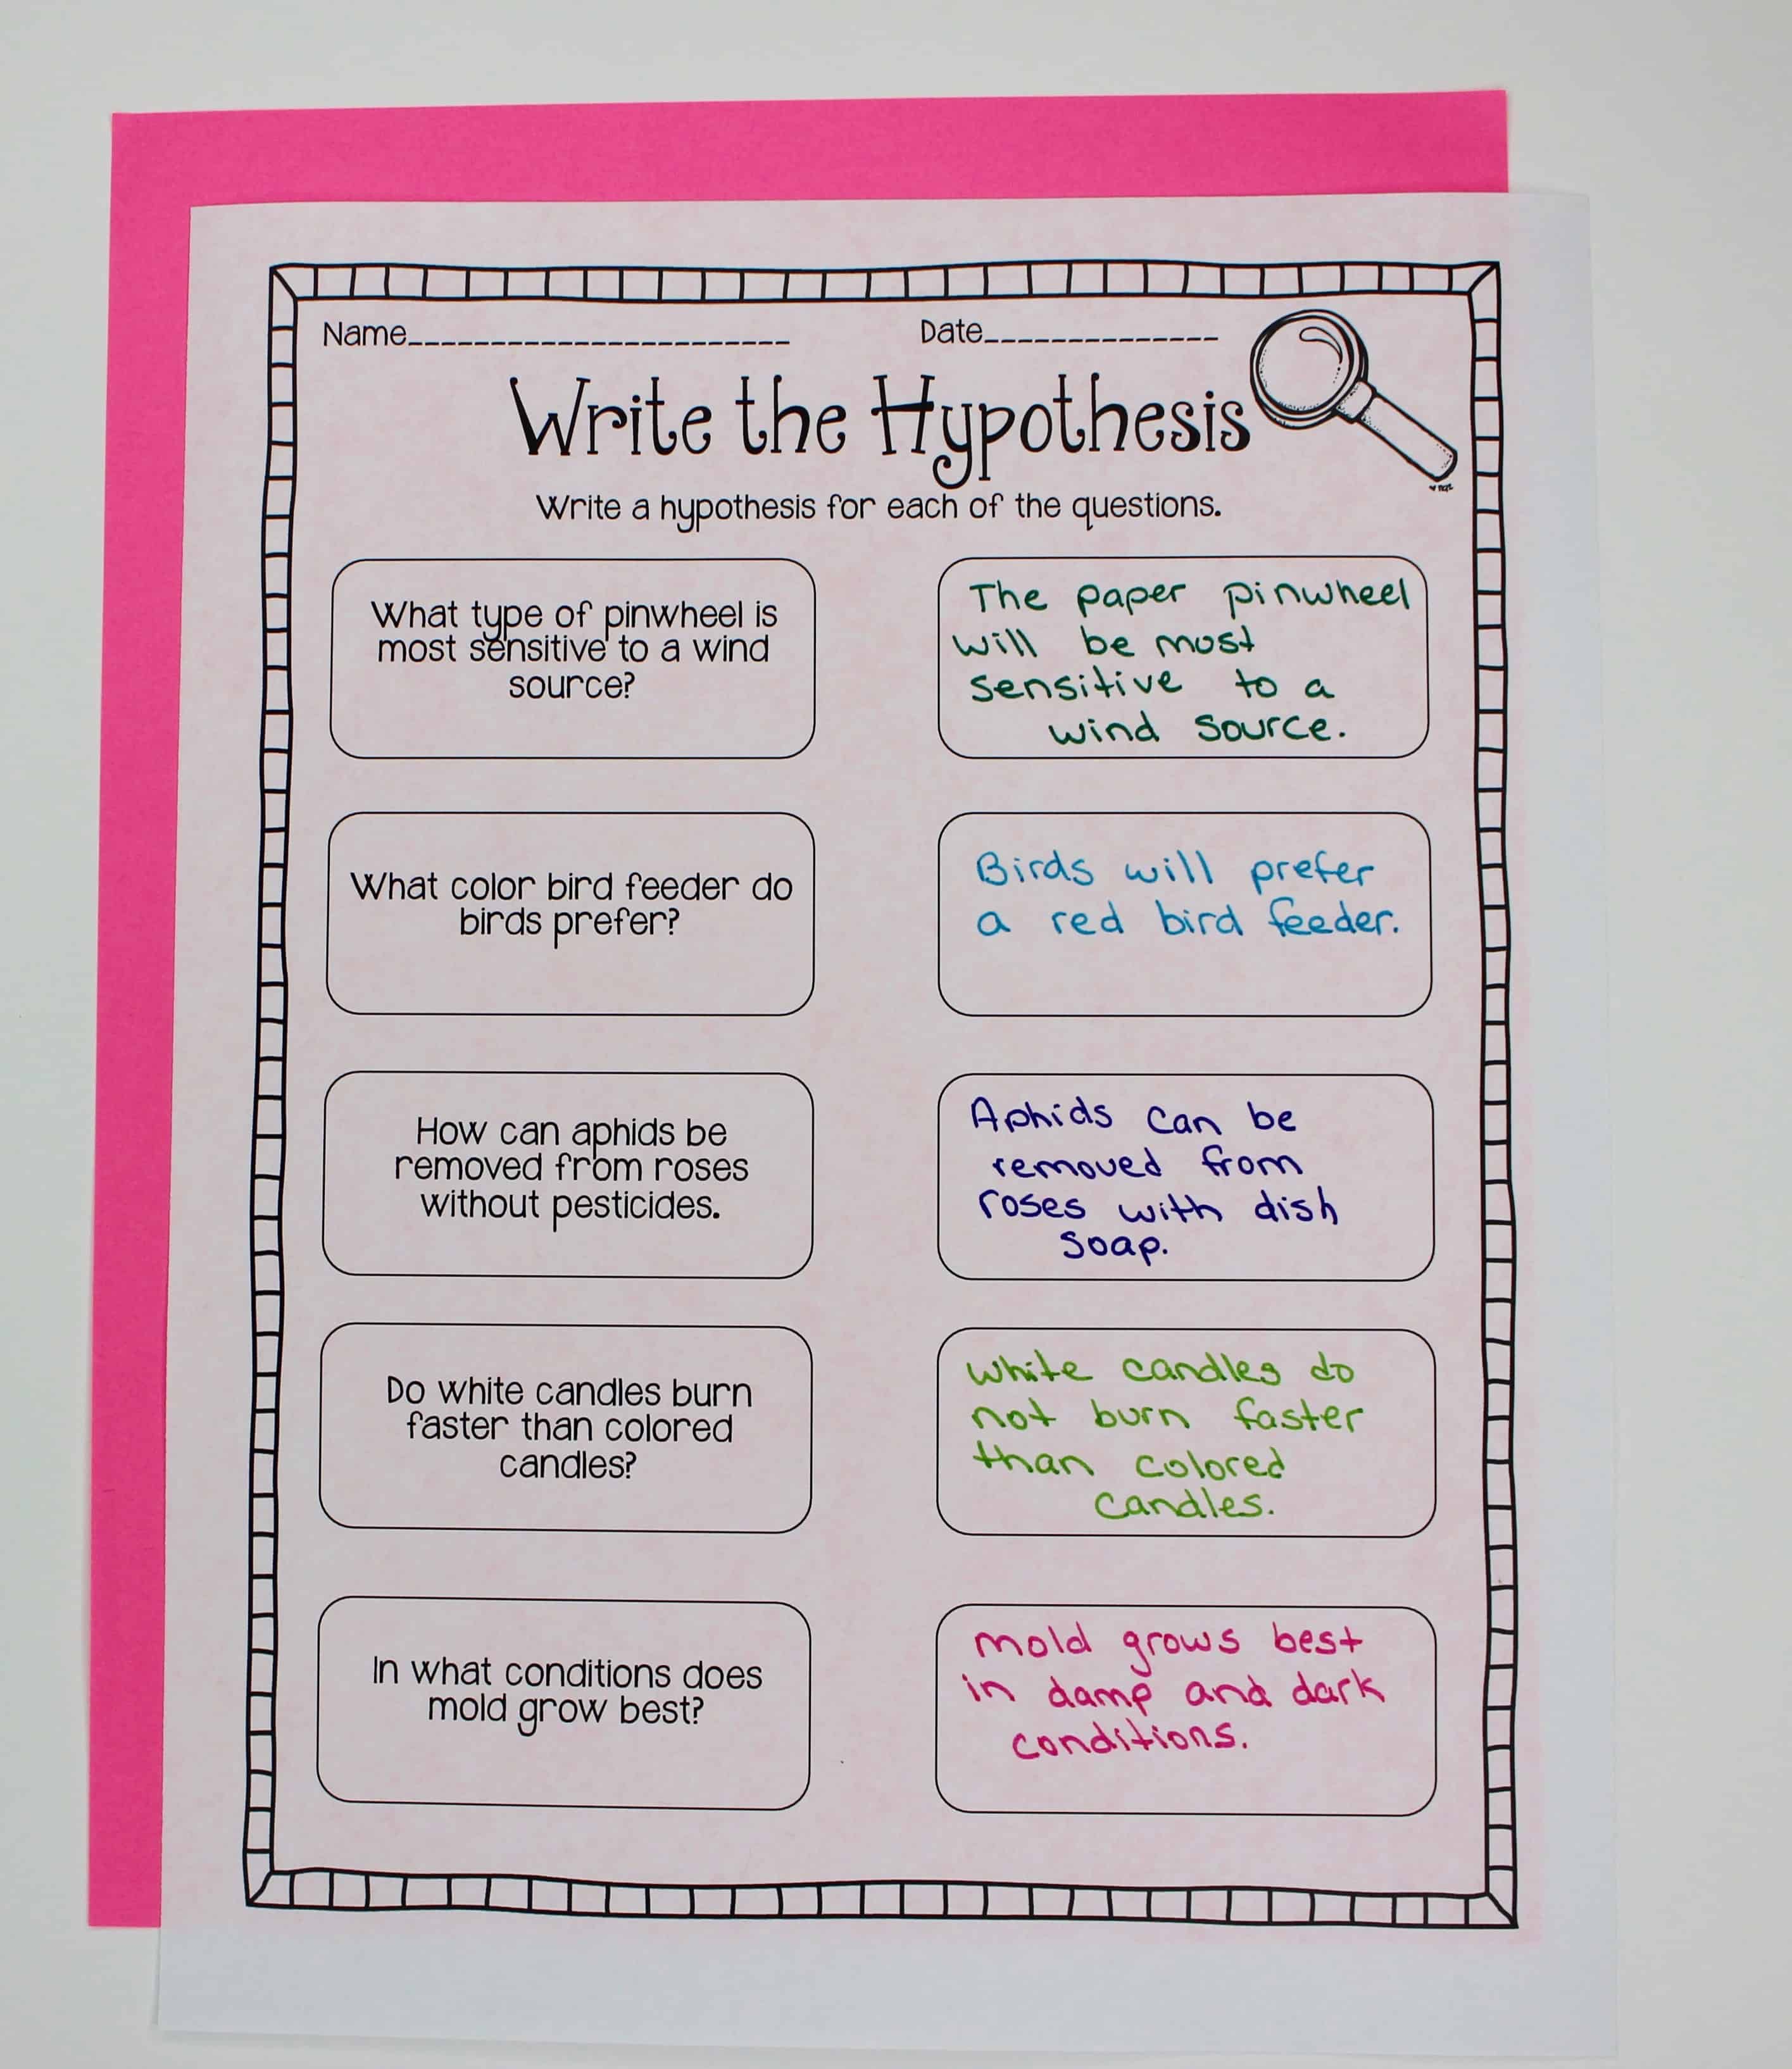 Name_______________________ Date______________
Write the Hypothesis
Write a hypothesis for each of the questions.
What type of pinwheel is
most sensitive to a wind
source?
The paper pinwheel
will be most
sensitive to a
wind source.
What color bird feeder do
birds prefer?
Birds will prefer
a red bird feeder.
How can aphids be
removed from roses
without pesticides.
Aphids can be
removed from
roses with dish
soap.
Do white candles burn
faster than colored
candles?
White candles do
not burn faster
than colored
candles.
In what conditions does
mold grow best?
mold grows best
in damp and dark
conditions.